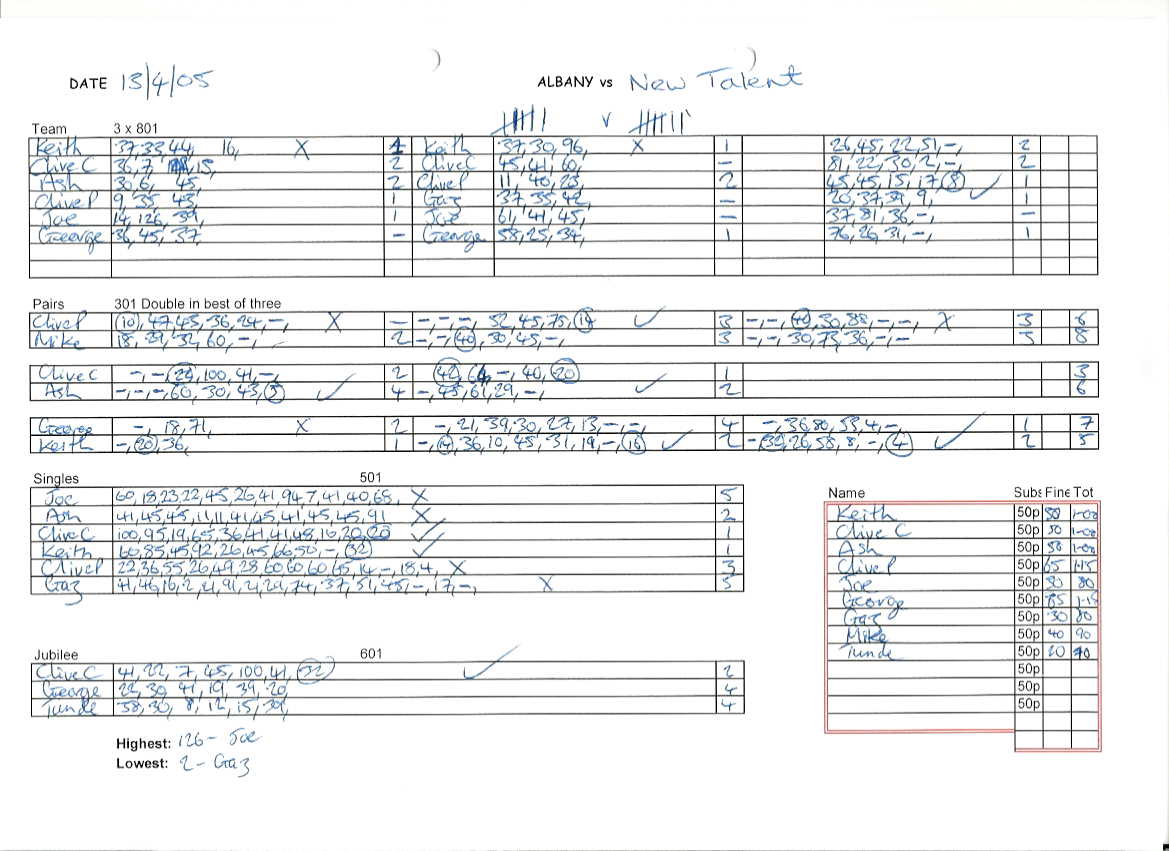 DATE 13/4/05 ALBANY vs New Talent
Team 3 x 801 v
Keith 37,33,44, 16, X 1 Keith 37,30,96, X 1 26,45,22,51,-, 2
Clive C 36,7, 15, 2 CliveC 45,41,60, - 81,22,30,2,-, 2
Ash 30,6, 45, 2 CliveP 11, 40,23, 2 45,45,15,17,(8) ✓ 1
CliveP 9,35, 43, 1 Gaz 37,35,42, - 20,37,39,9, 1
Joe 14,126,39, 1 Joe 61,41,45, - 37,81,36,-, -
George 36,45,37, - George 58,25,34, 1 76,26,31,-, 1
Pairs 301 Double in best of three
CliveP (10),47,45,36,24,-, X - -,-,-, 52,45,75, ✓ 3 -,-,(40),30,88,-,-, X 3 6
Mike 18,29,32,60,-, 2 -,-,(40),30,45,-, 3 -,-,30,73,36,-,- 3 8
Clive C -,-,(24),100,41,-, 2 (42),64,-,40,(20) 1 3
Ash -,-,-,60,30,43,(3) ✓ 4 -,45,61,29,-, ✓ 2 6
George -, 18,71, X 2 -,21,39,30,27,13,-,-, 4 -,36,80,53,4,-, 1 7
Keith -,(20),36, 1 -,(4),36,10,45,31,19,-,(16) ✓ 2 -,(32),26,58,8,-,(4) ✓ 2 5
Singles 501
Joe 60,18,23,22,45,26,41,94,7,41,40,68, X 5
Ash 41,45,45,11,11,41,45,41,45,45,91 X 2
CliveC 100,95,19,65,36,41,41,48,16,20,(20) ✓ 1
Keith 60,85,45,92,26,45,66,50,-,(32) ✓ 1
CliveP 22,36,55,26,49,28,60,60,60,45,14,-,18,4, X 3
Gaz 41,46,16,2,21,91,21,29,74,37,51,45,-,17,-, X 3
Name Subs Fine Tot
Keith 50p 50 1-00
Clive C 50p 50 1-00
Ash 50p 50 1-00
CliveP 50p 65 1-15
Joe 50p 30 80
George 50p 65 1-15
Gaz 50p 30 80
Mike 50p 40 90
Tunde 50p 20 70
50p
50p
50p
Jubilee 601
Clive C 41,22,7,45,100,41,(32) ✓ 2
George 22,30,41,19,39,20 4
Tunde 38,30,8,12,15,39, 4
Highest: 126 - Joe
Lowest: 2 - Gaz